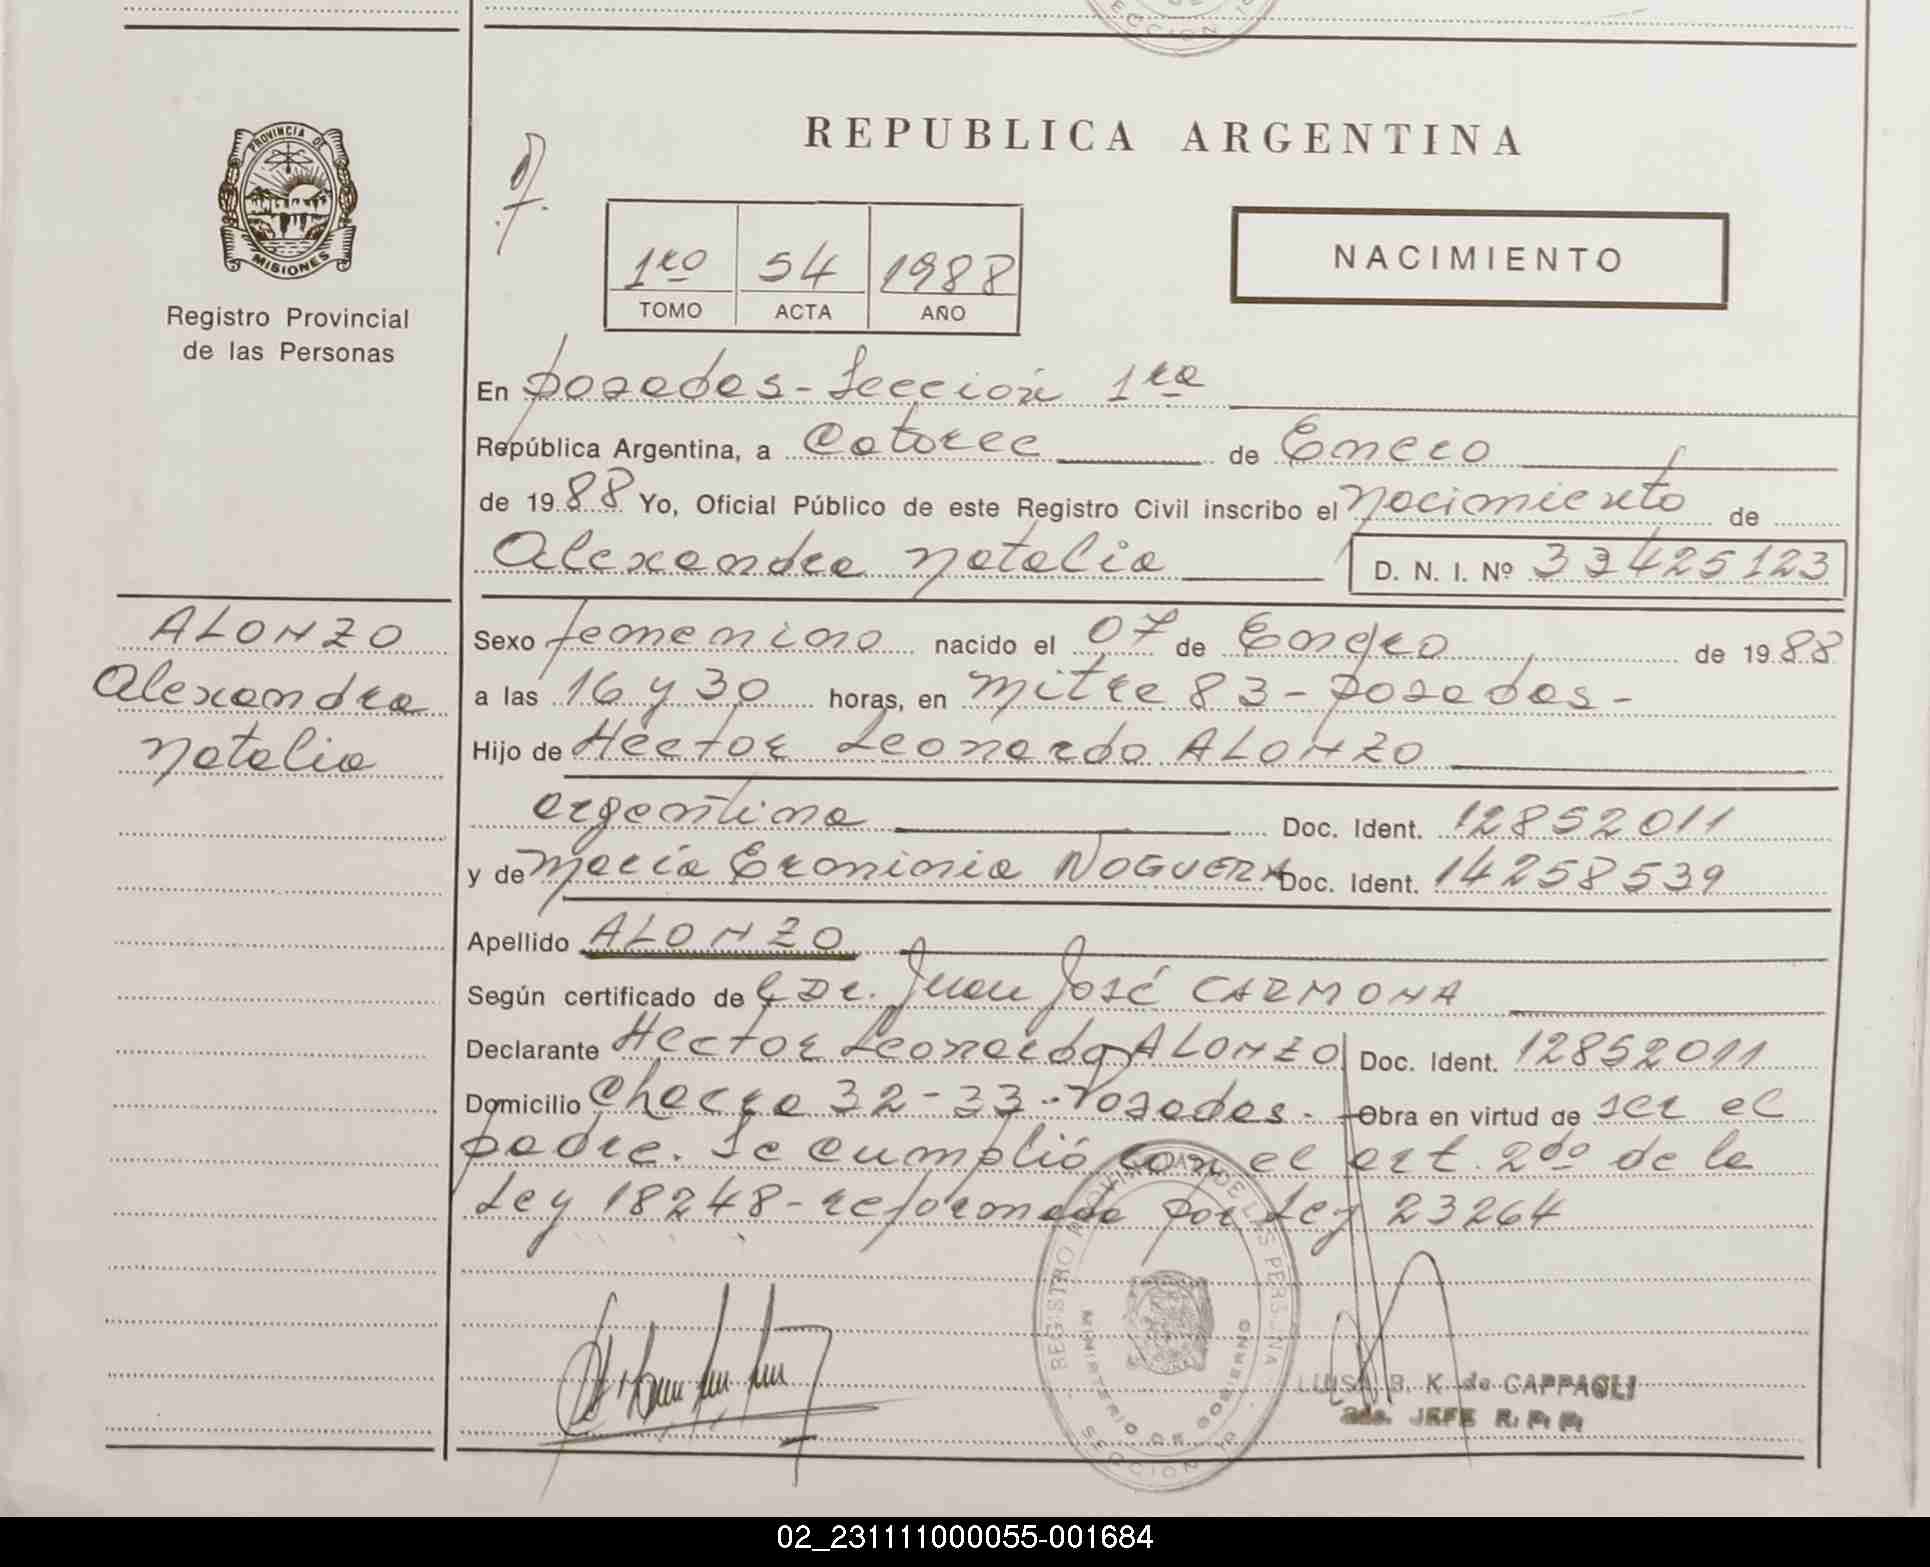 PROVINCIA DE
MISIONES
Registro Provincial
de las Personas
REPUBLICA ARGENTINA
1ro 54 1988
TOMO ACTA AÑO
NACIMIENTO
En Posadas - Sección 1ra
República Argentina, a Catorce de Enero
de 1988 Yo, Oficial Público de este Registro Civil inscribo el Nacimiento de
Alexandra Natalia D. N. I. Nº 33425123
ALONZO
Alexandra
Natalia
Sexo femenino nacido el 07 de Enero de 1988
a las 16 y 30 horas, en Mitre 83 - Posadas -
Hijo de Hector Leonardo ALONZO
argentina Doc. Ident. 12852011
y de María Erminia NOGUERA Doc. Ident. 14258539
Apellido ALONZO
Según certificado de Dr. Juan José CARMONA
Declarante Hector Leonardo ALONZO Doc. Ident. 12852011
Domicilio Chacra 32-33 - Posadas. - Obra en virtud de ser el
padre. Se cumplió con el art. 2do de la
Ley 18248 - reformada por Ley 23264
REGISTRO PROVINCIAL DE LAS PERSONAS
MINISTERIO DE GOBIERNO
SECCION 1a
LUISA B. K. de CAPPAGLI
JEFE R. P. P.
02_231111000055-001684